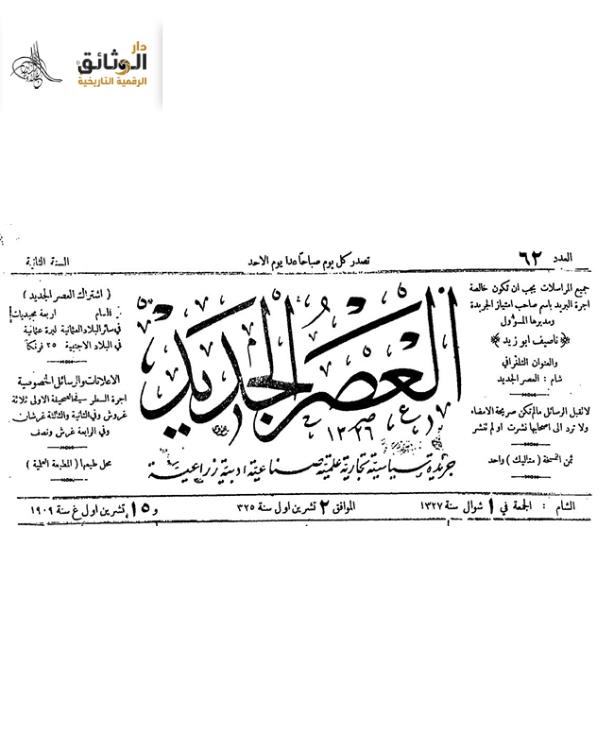 دار
الوثائق
الرقمية التاريخية
العدد ٦٢
تصدر كل يوم صباحا عدا يوم الاحد
السنة الثانية
جميع المراسلات يجب ان تكون خالصة
اجرة البريد باسم صاحب امتياز الجريدة
ومديرها المسؤول
﴿ناصيف ابو زيد﴾
والعنوان التلغرافي
شام : العصر الجديد
لا تقبل الرسائل ما لم تكن صريحة الامضاء
ولا ترد الى اصحابها نشرت او لم تنشر
ثمن النسخة (متاليك) واحد
العصر الجديد
١٣٢٦
جريدة سياسية تجارية علمية صناعية ادبية زراعية
( اشتراك العصر الجديد )
اربعة مجيديات
في سائر البلاد العثمانية ليرة عثمانية
في البلاد الاجنبية ٢٥ فرنكا
الاعلانات والرسائل الخصوصية
اجرة السطر في الصحيفة الاولى ثلاثة
غروش وفي الثانية والثالثة غرشان
وفي الرابعة غرش ونصف
محل طبعها (المطبعة العلمية)
الشام : الجمعة في ١ شوال سنة ١٣٢٧
الموافق ٢ تشرين اول سنة ٣٢٥
و ١٥ تشرين اول غ سنة ١٩٠٩